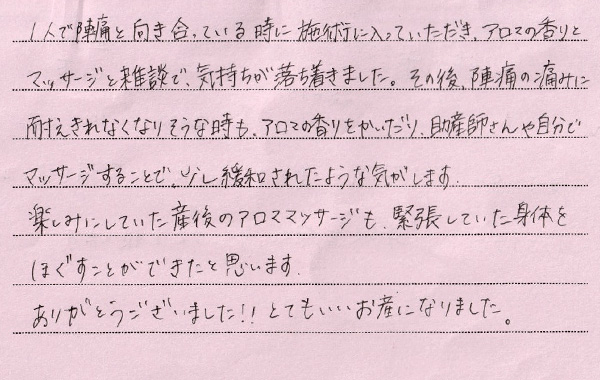 1人で陣痛と向き合っている時に施術に入っていただき、アロマの香りと
マッサージと雑談で、気持ちが落ち着きました。その後、陣痛の痛みに
耐えきれなくなりそうな時も、アロマの香りをかいだり、助産師さんや自分で
マッサージすることで、少し緩和されたような気がします。
楽しみにしていた産後のアロママッサージも、緊張していた身体を
ほぐすことができたと思います。
ありがとうございました!! とてもいいお産になりました。